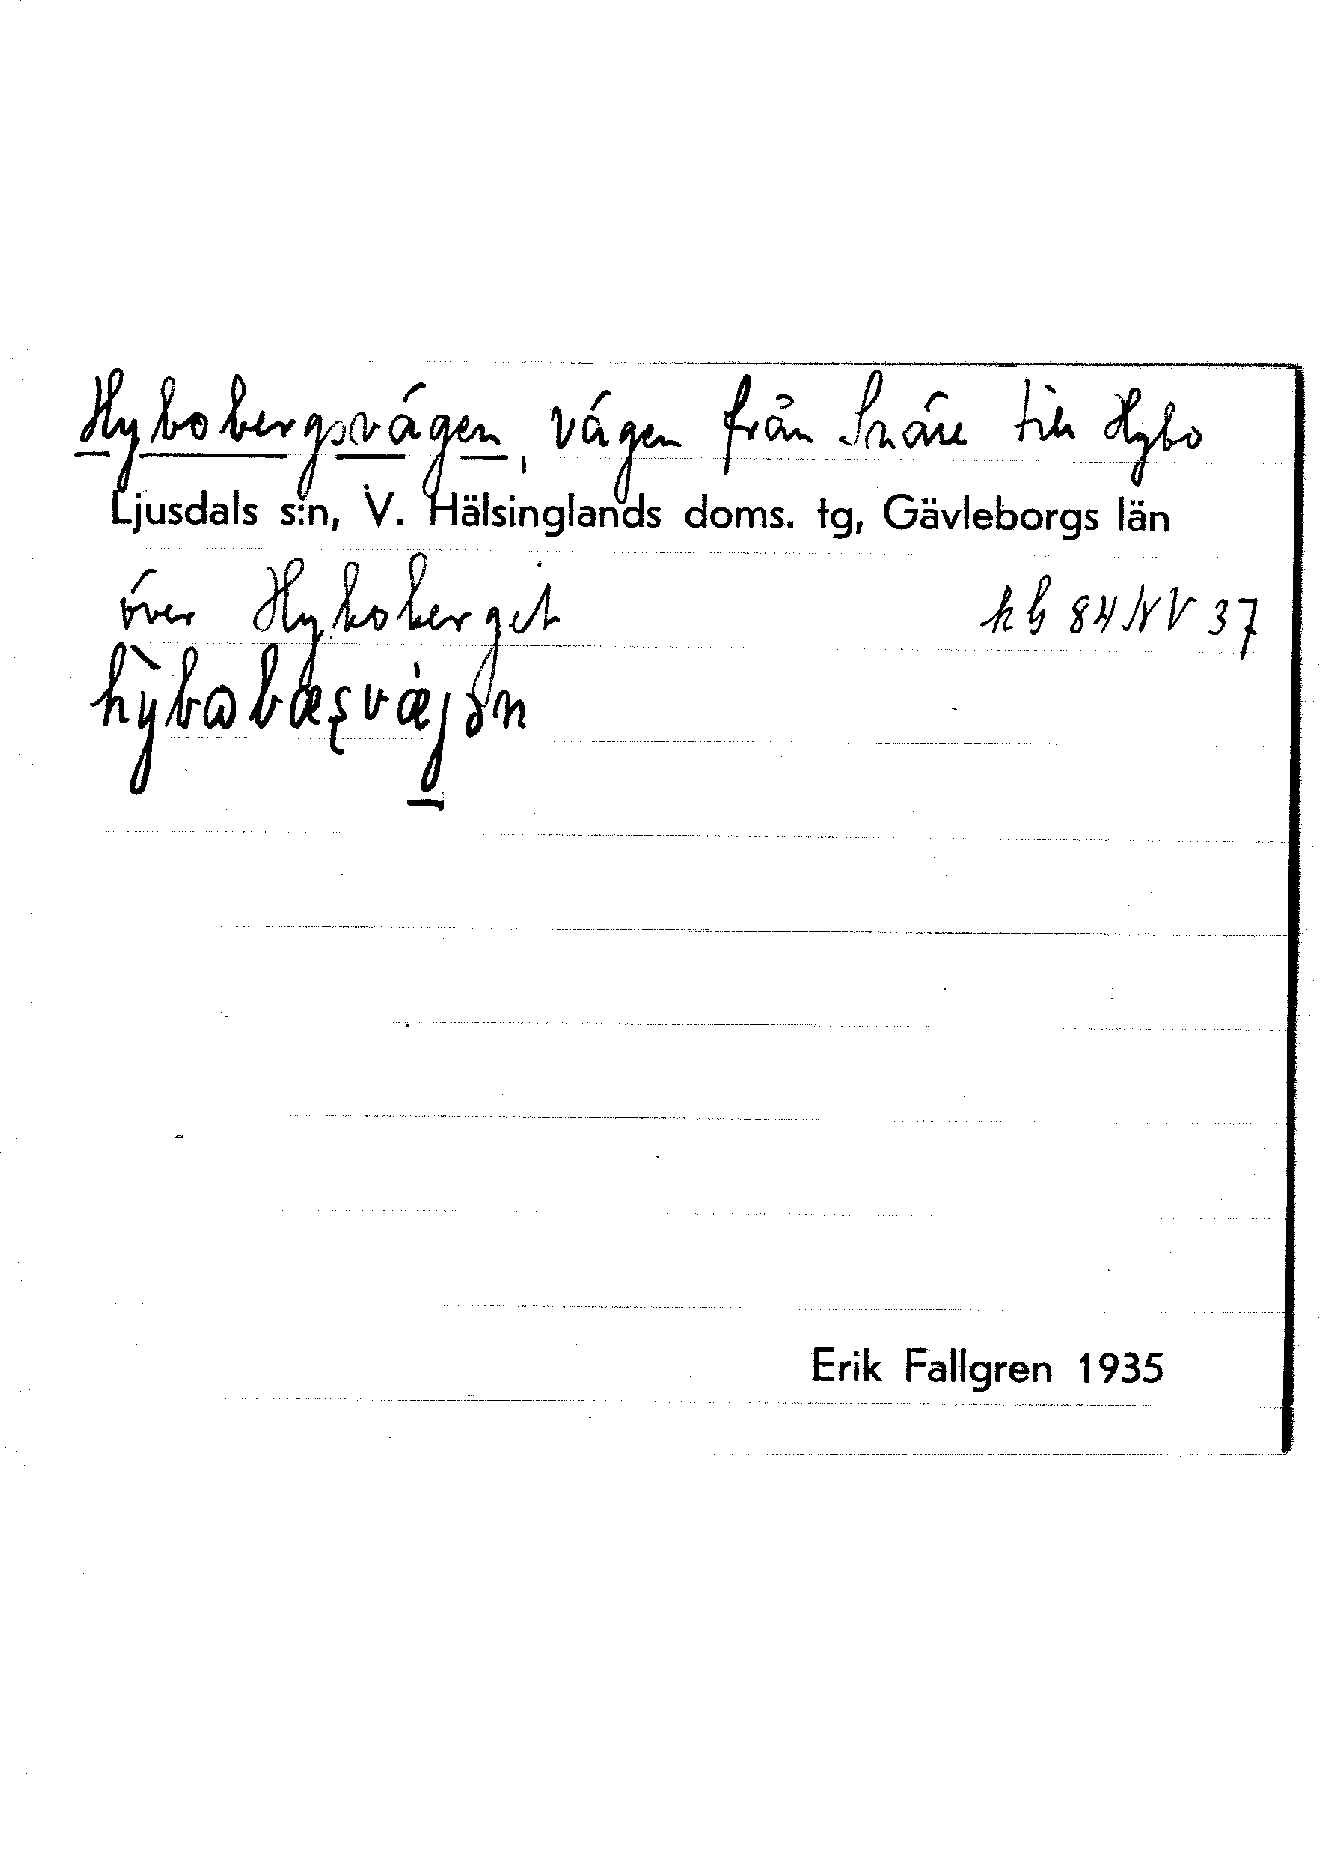 Hybobergsvägen, vägen från Snäre till Hybo
Ljusdals s:n, V. Hälsinglands doms. tg, Gävleborgs län
över Hyboberget hb 84 NV 37
Erik Fallgren 1935